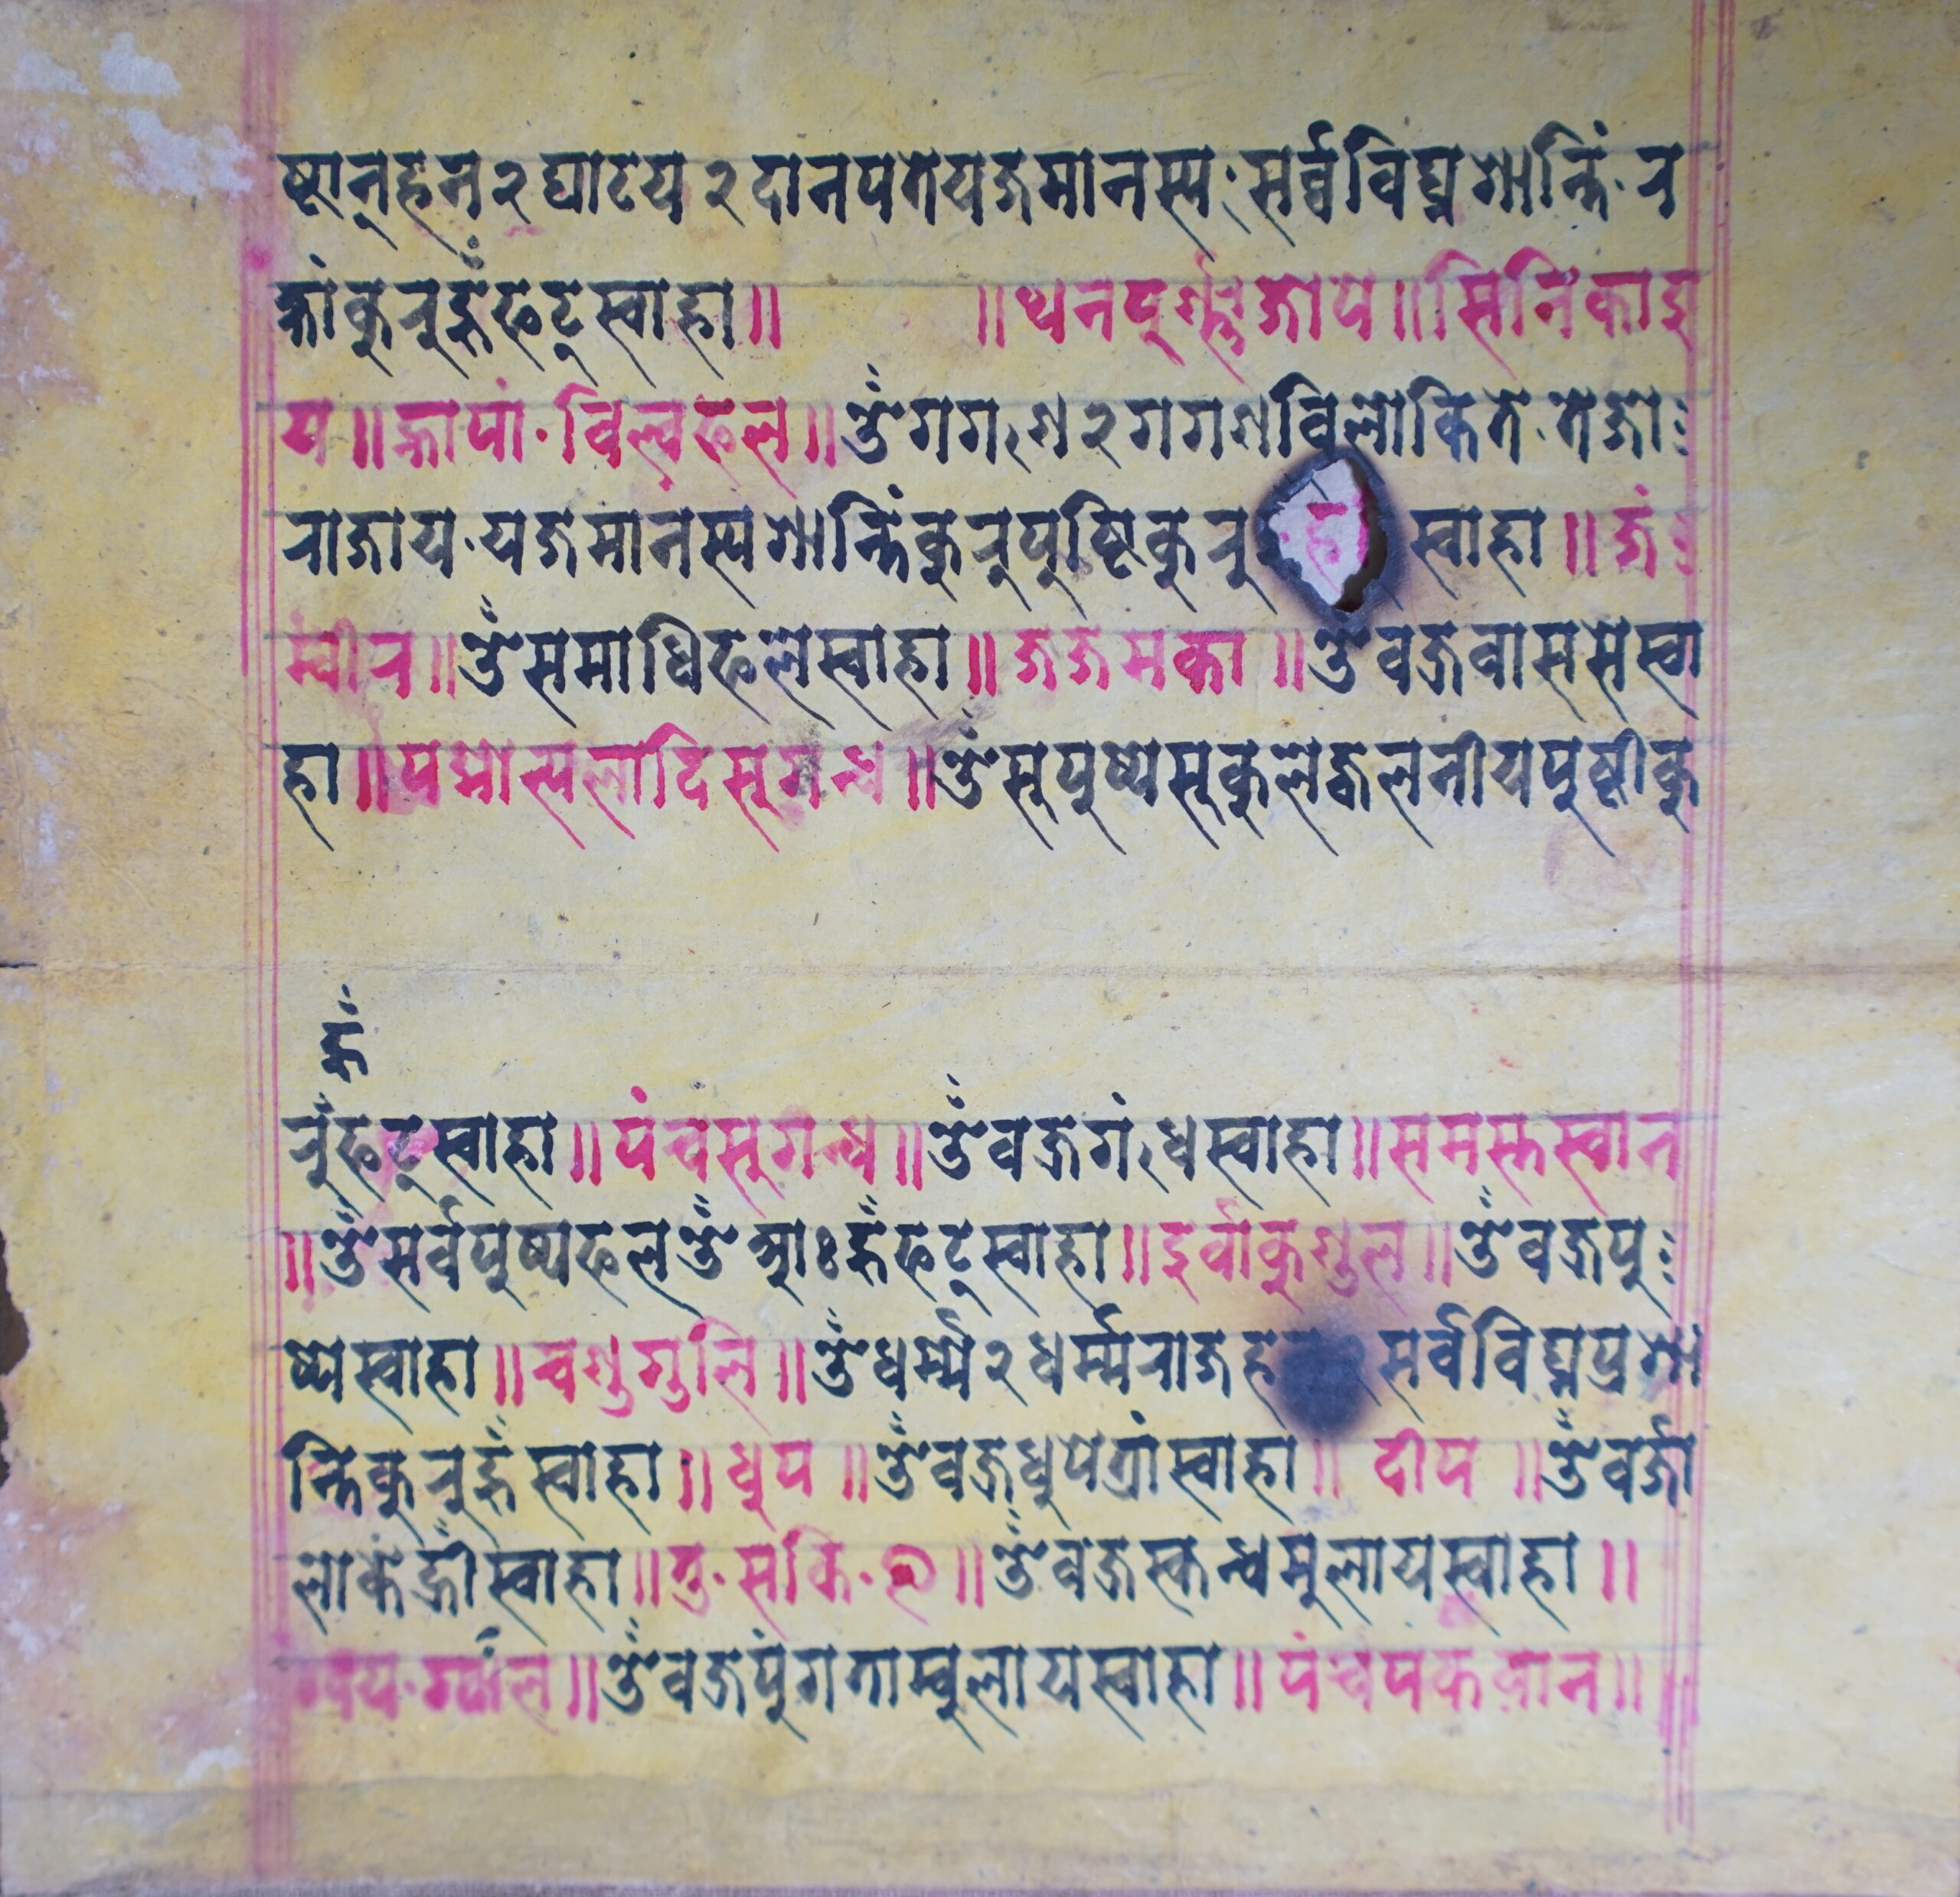 ष्टान्हन२घाटय२दानपतेयजमानस्यःसर्व्वविघ्नशान्तिं·र
क्षांकुरुहूँफट्स्वाहा॥ ॥थनपूर्णजापे॥सिनिकाइ
य॥क्रापां·विल्वफल॥ॐगग,ण२गगणविलोकिते·तेजोः
राजाय·यजमानस्यशान्तिंकुरुपुष्टिकुरु स्वाहा॥जंः
म्वीर॥ॐसमाधिफलेस्वाहा॥जजमका॥ॐवज्रवाससेस्वा
हा॥पद्मोत्पलादिसुगन्ध॥ॐसुपुष्पेसुकुलेज्वलनीयपुष्टीकु
हूँ
रुंफट्स्वाहा॥पंचसुगन्ध॥ॐवज्रगं,धेस्वाहा॥समस्तस्वान
॥ॐसर्वपुष्पफलॐआःहूँफट्स्वाहा॥इर्वाकुगुल॥ॐवज्रपुः
ष्पेस्वाहा॥चगुगुलि॥ॐधर्म्म२धर्म्मराज सर्वविघ्नप्रशा
न्तिकुरुहूँस्वाहा॥धुप॥ॐवज्रधुपेत्रांस्वाहा॥दीप॥ॐवर्जा
लोकेंह्रीँस्वाहा॥तु·सकि·॥ॐवज्रस्कन्धमुलायस्वाहा॥
ॐवज्रपुंगताम्बुलायस्वाहा॥पंचपकवान॥